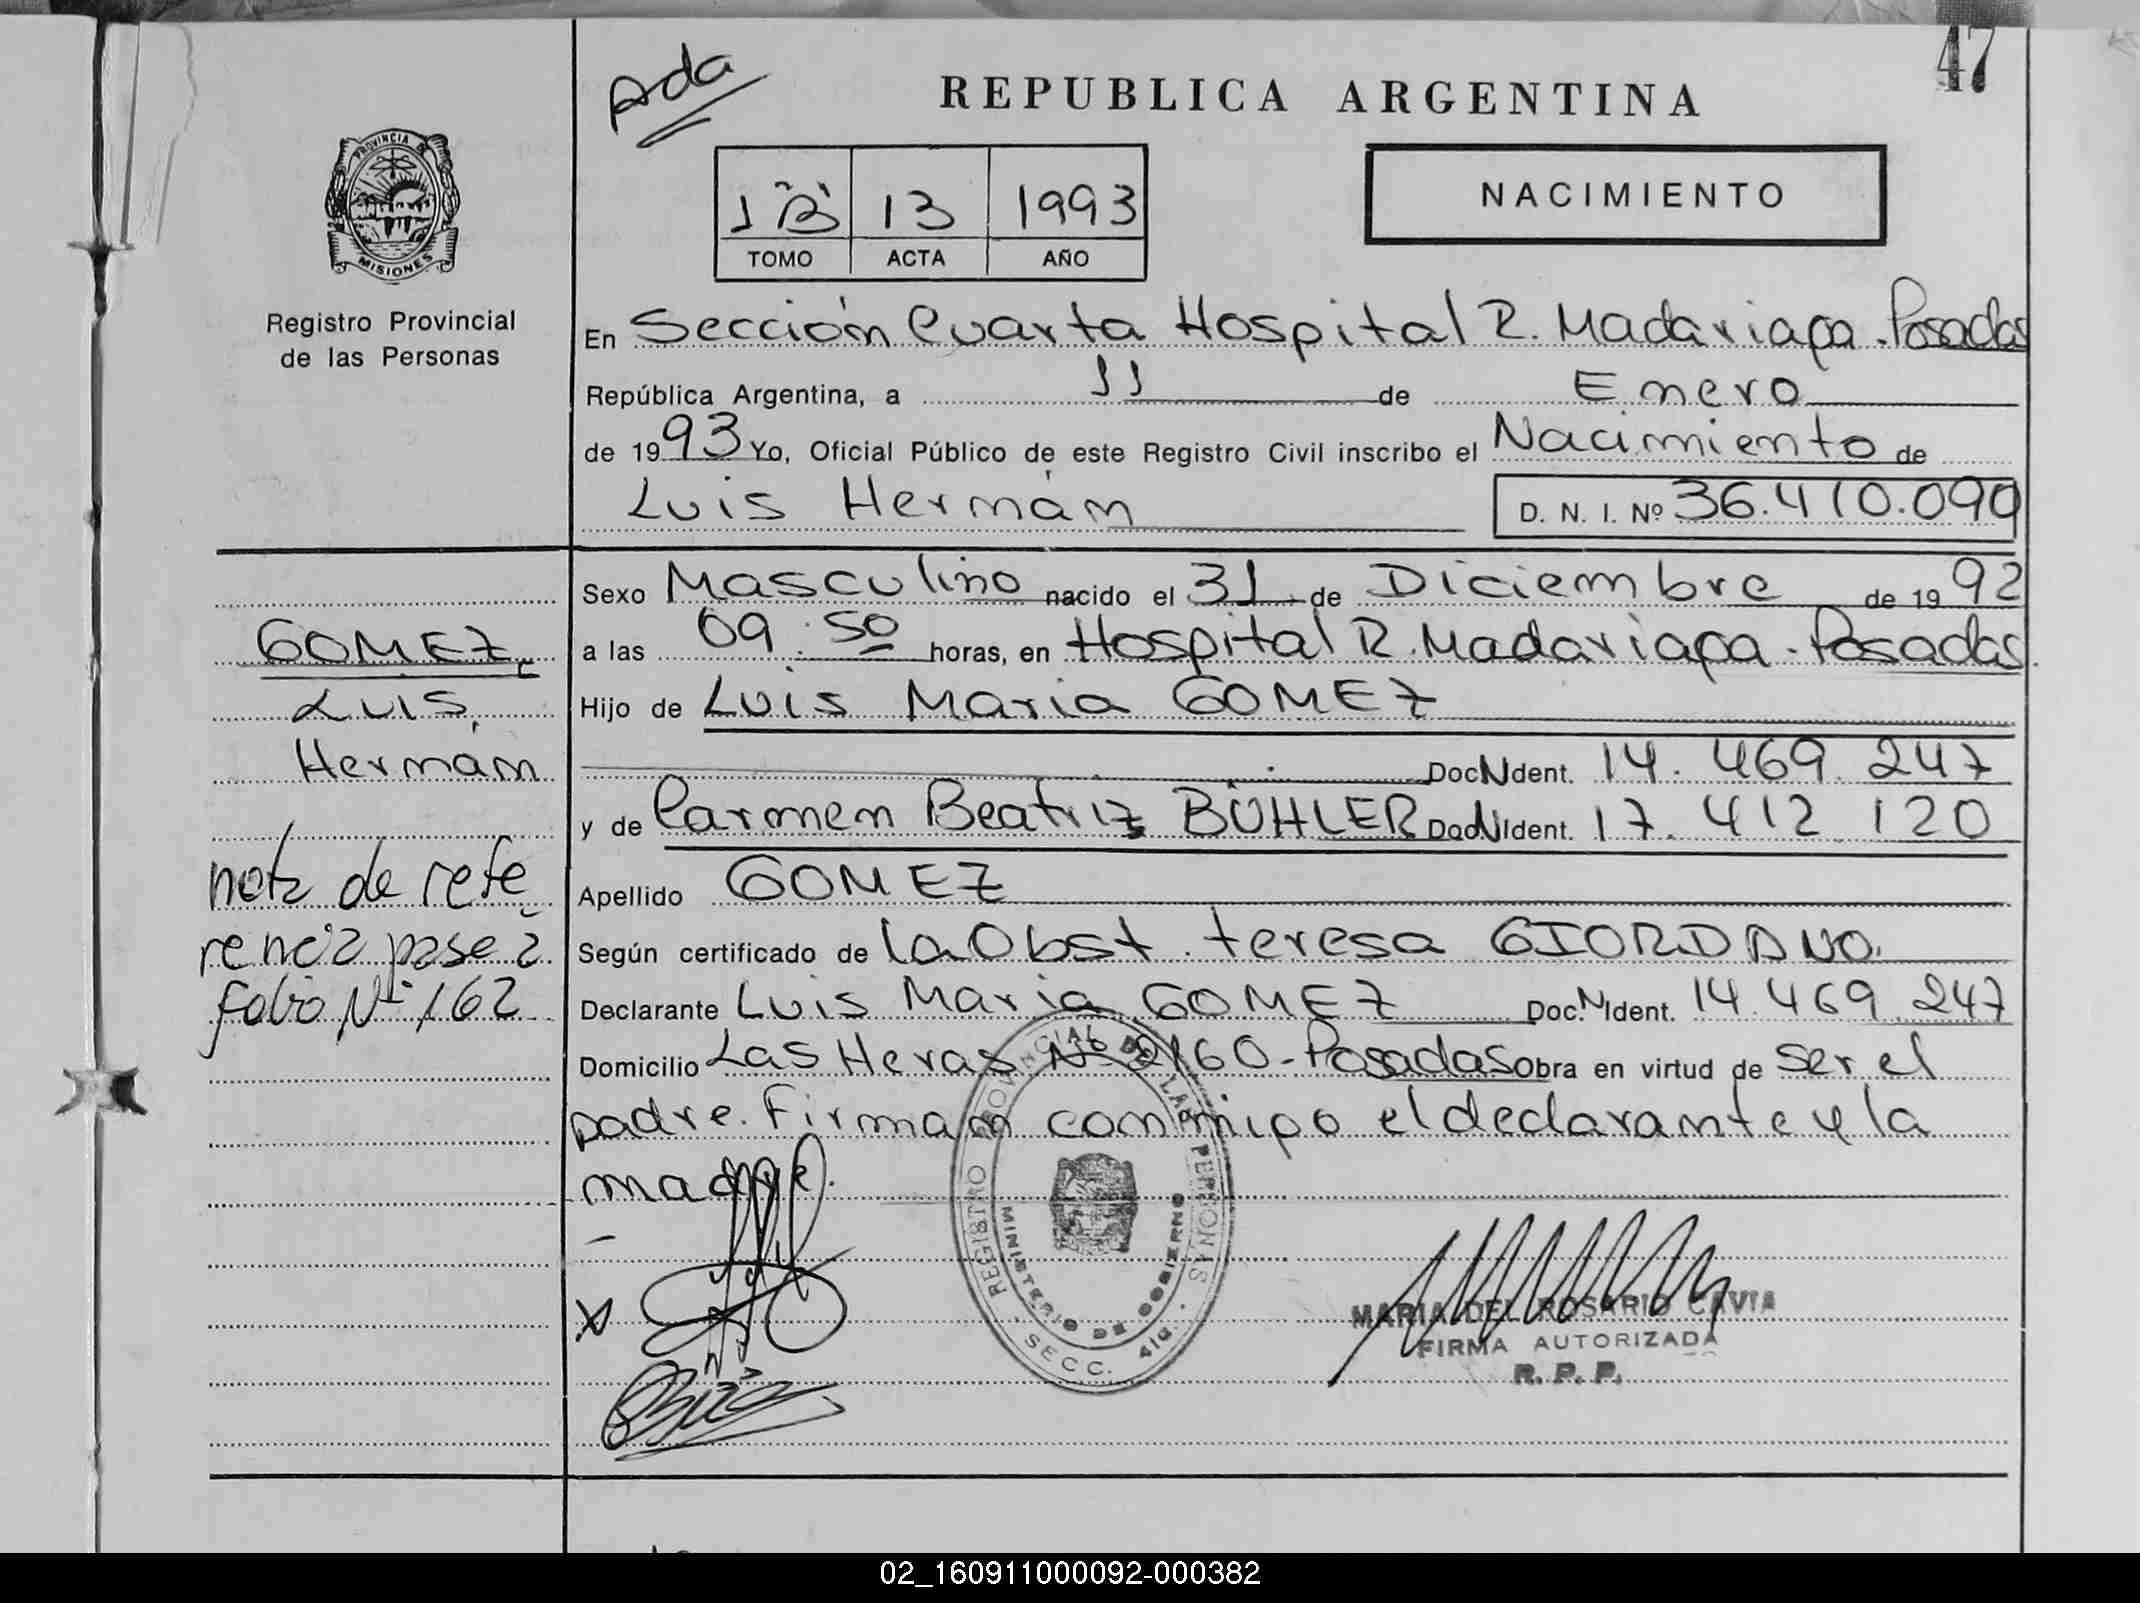 47
Ada
REPUBLICA ARGENTINA
PROVINCIA DE
MISIONES
Registro Provincial
de las Personas
1 "B" 13 1993
TOMO ACTA AÑO
NACIMIENTO
En Sección Cuarta Hospital R. Madariaga - Posadas
República Argentina, a 11 de Enero
de 1993 Yo, Oficial Público de este Registro Civil inscribo el Nacimiento de
Luis Hernán D. N. I. Nº 36.410.090
Sexo Masculino nacido el 31 de Diciembre de 1992
a las 09:50 horas, en Hospital R. Madariaga - Posadas
Hijo de Luis Maria GOMEZ
DocNIdent. 14.469.247
y de Carmen Beatriz BÜHLER DocNIdent. 17.412.120
Apellido GOMEZ
Según certificado de la Obst. teresa GIORDANO.
Declarante Luis Maria GOMEZ Doc.NIdent. 14.469.247
Domicilio Las Heras Nº 2160 - Posadas Obra en virtud de ser el
padre. Firman conmigo el declarante y la
madre.
GOMEZ,
Luis,
Hernán
nota de refe
rencia pase a
folio Nº 162
REGISTRO PROVINCIAL DE LAS PERSONAS
MINISTERIO DE GOBIERNO
SECC. 4ta.
MARIA DEL ROSARIO CAVIA
FIRMA AUTORIZADA
R. P. P.
02_160911000092-000382